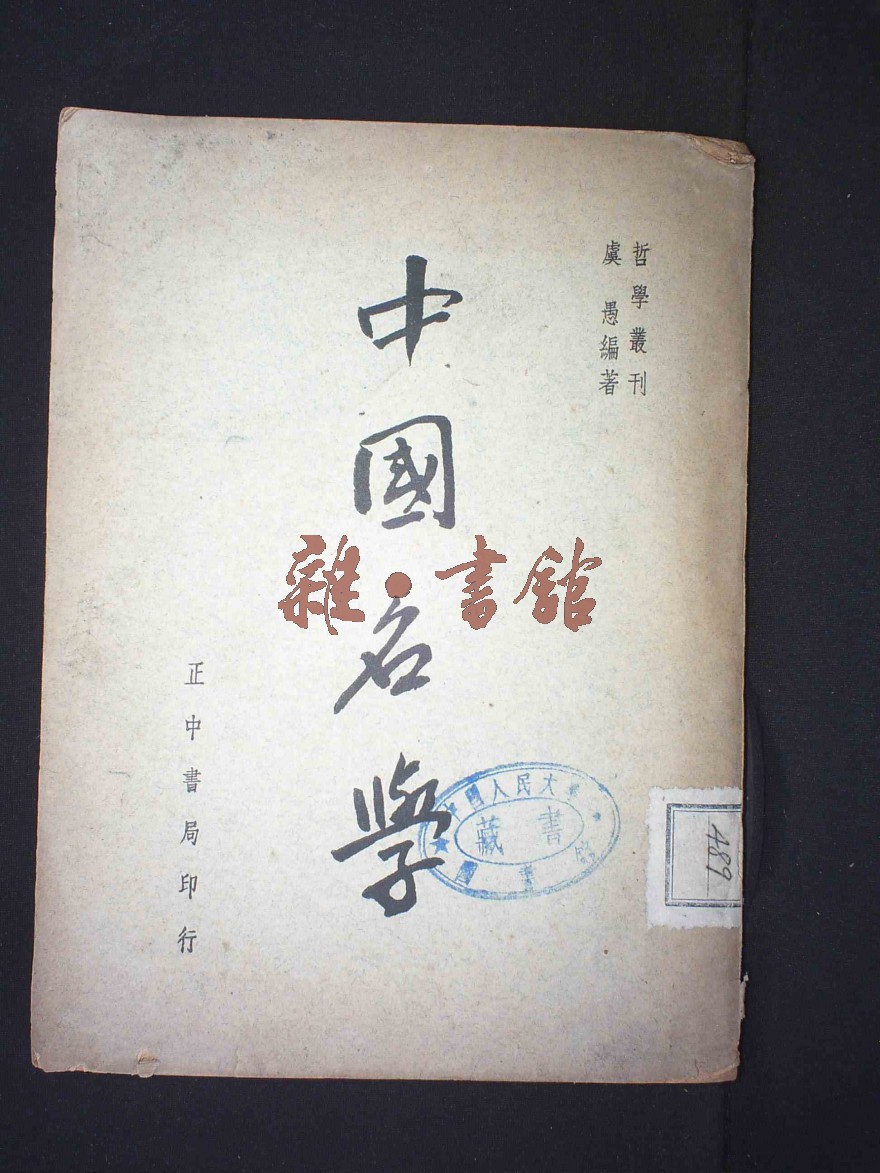 哲學叢刊
虞愚編著
中國名學
正中書局印行
雜·書館
中國人民大學
圖書館
藏書
489